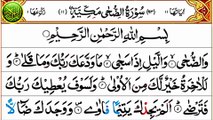 سُورَةُ الضُّحٰى مَكِّيَّةٌ
بِسْمِ اللّٰهِ الرَّحْمٰنِ الرَّحِيْمِ
وَالضُّحٰى وَالَّيْلِ اِذَا سَجٰى مَا وَدَّعَكَ رَبُّكَ وَمَا قَلٰى وَ
لَلْاٰخِرَةُ خَيْرٌ لَّكَ مِنَ الْاُوْلٰى وَلَسَوْفَ يُعْطِيْكَ رَبُّكَ
فَتَرْضٰى اَلَمْ يَجِدْكَ يَتِيْمًا فَاٰوٰى وَوَجَدَكَ ضَآلًّا